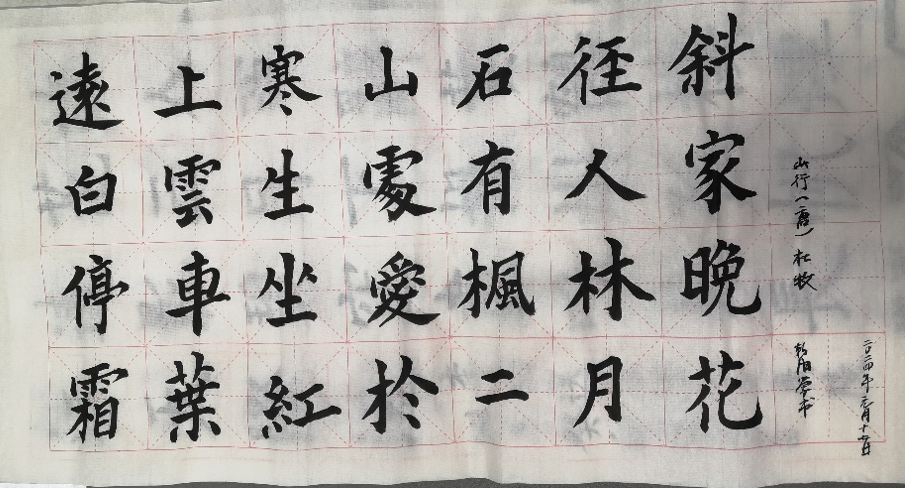 遠上寒山石径斜
白雲生處有人家
停車坐愛楓林晚
霜葉紅於二月花
山行（唐）杜牧
二〇二四年元月十日